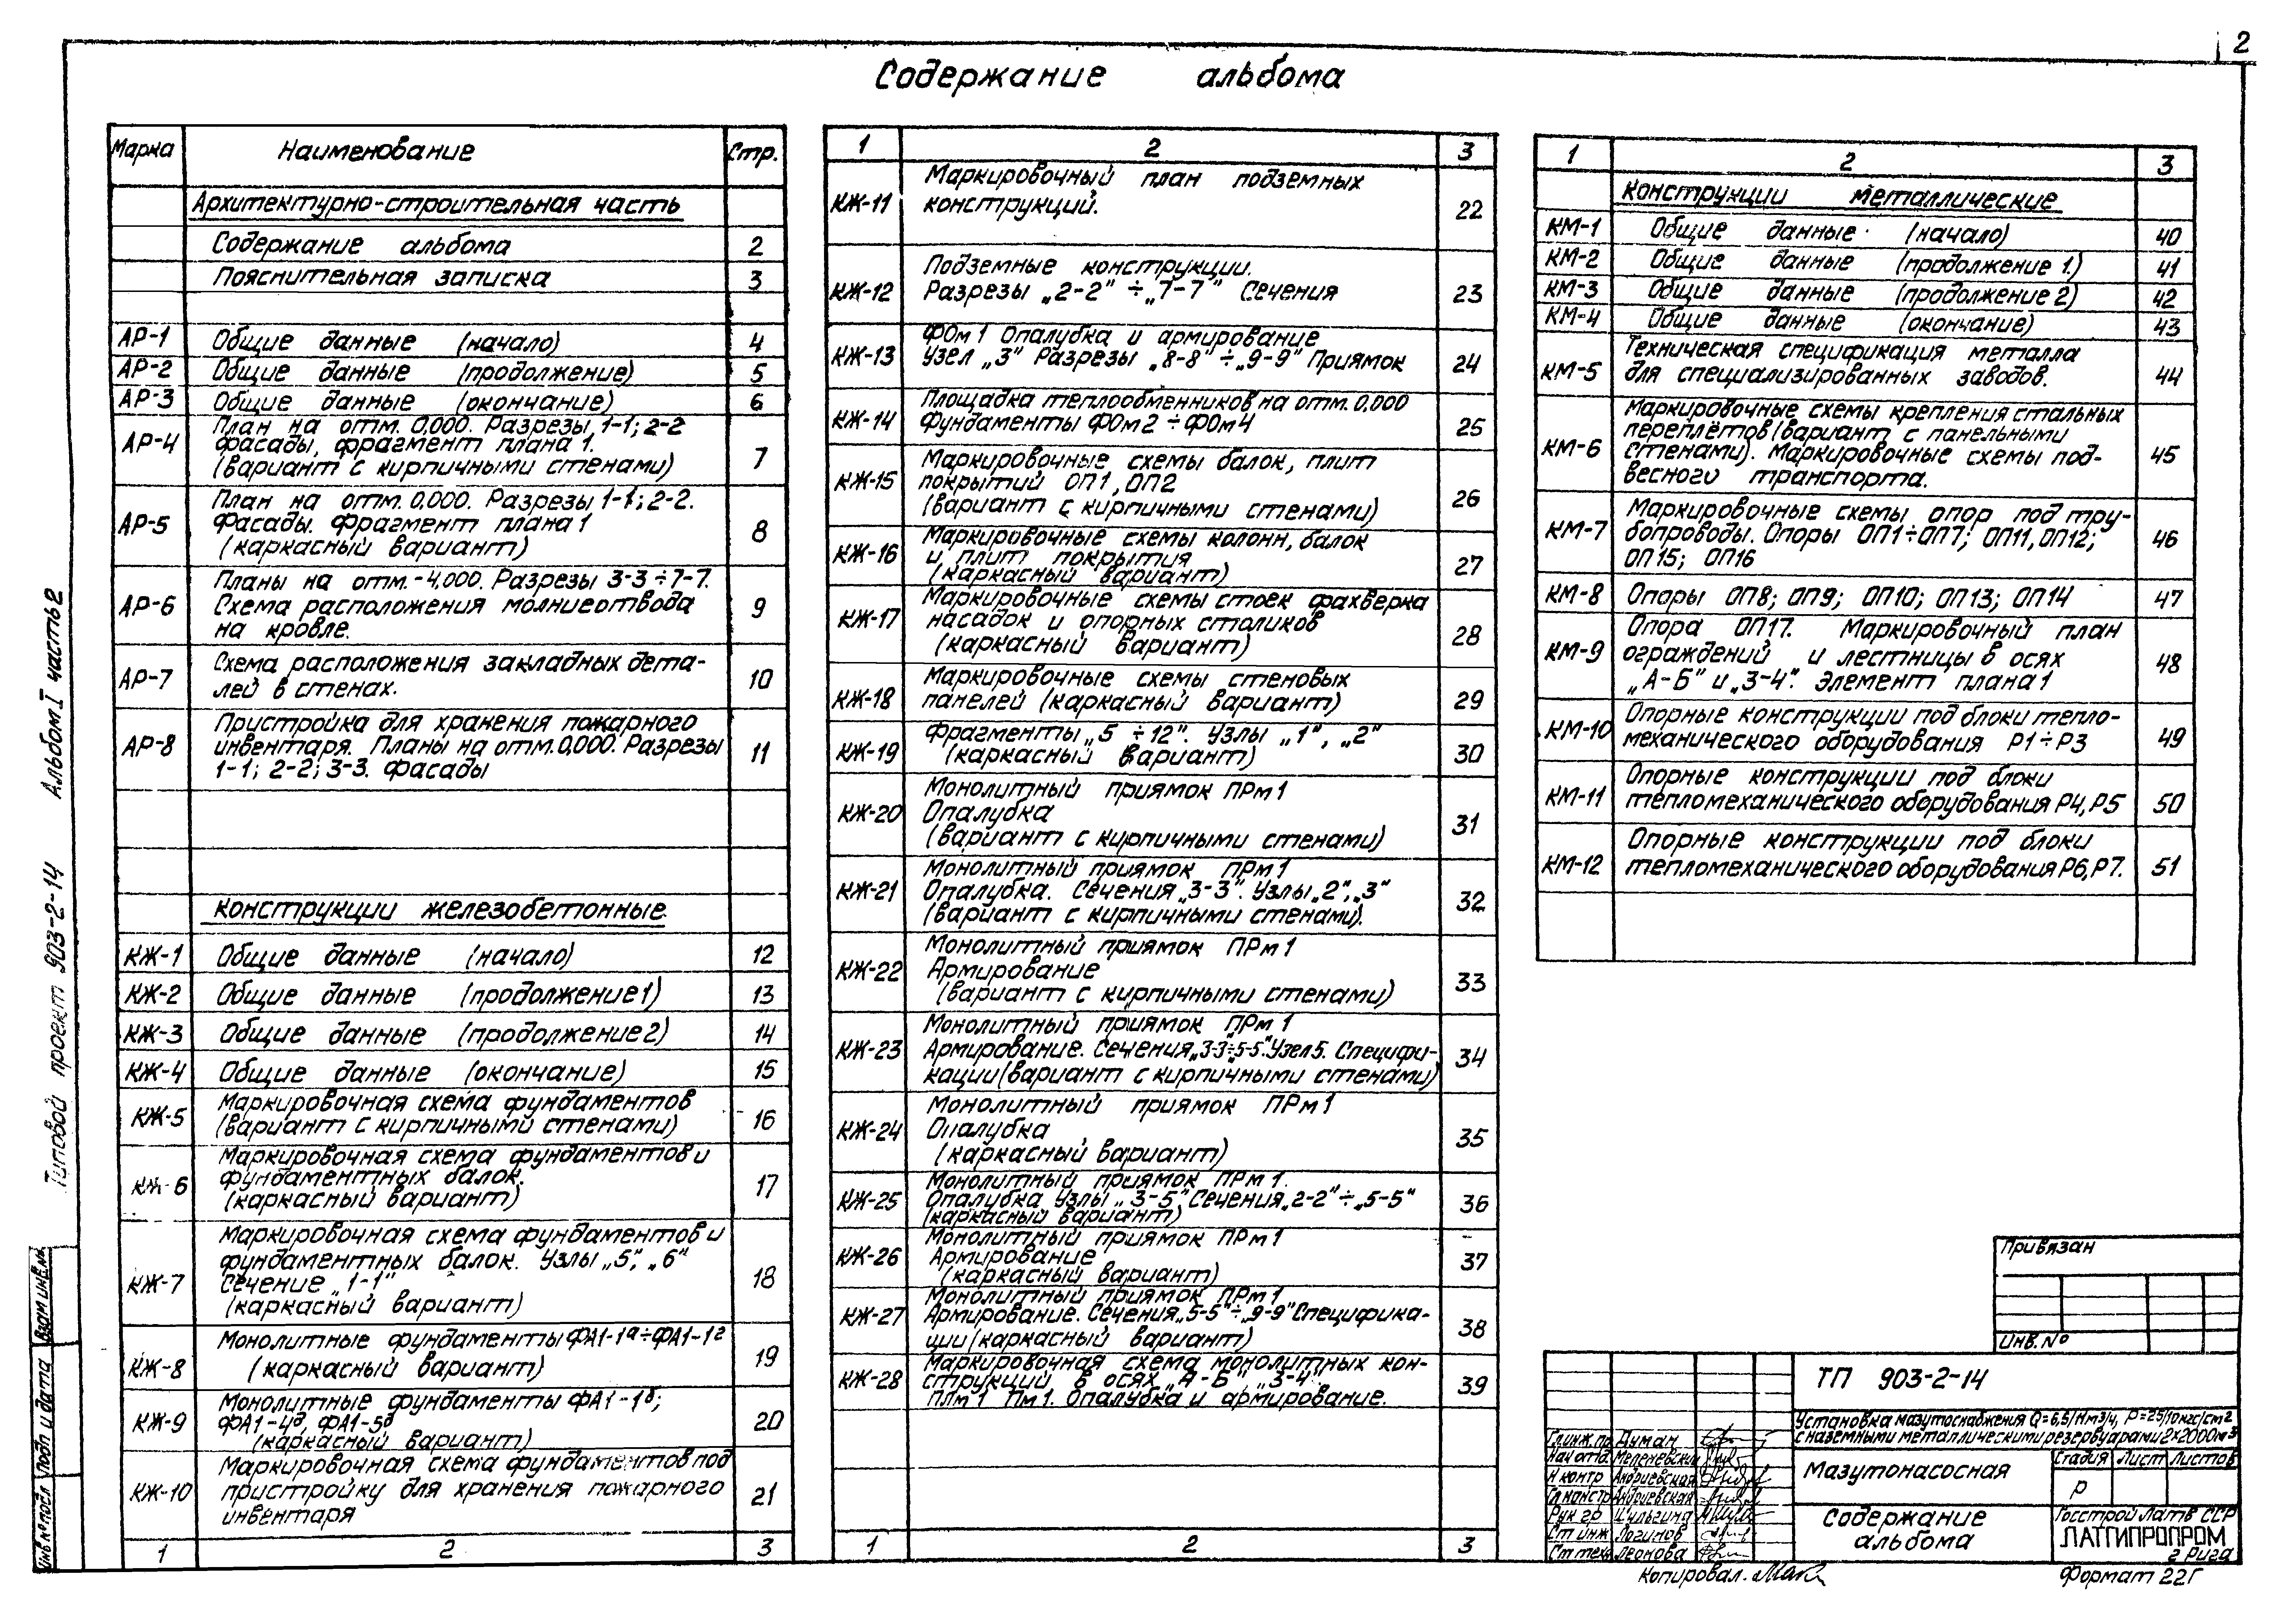 2
Содержание альбома
Марка Наименование Стр.
Архитектурно-строительная часть
Содержание альбома 2
Пояснительная записка 3
АР-1 Общие данные (начало) 4
АР-2 Общие данные (продолжение) 5
АР-3 Общие данные (окончание) 6
АР-4 План на отм. 0,000. Разрезы 1-1; 2-2
фасады, фрагмент плана 1.
(вариант с кирпичными стенами) 7
АР-5 План на отм. 0,000. Разрезы 1-1; 2-2.
Фасады. фрагмент плана 1
(каркасный вариант) 8
АР-6 Планы на отм. -4,000. Разрезы 3-3÷7-7.
Схема расположения молниеотвода
на кровле. 9
АР-7 Схема расположения закладных дета-
лей в стенах. 10
АР-8 Пристройка для хранения пожарного
инвентаря. Планы на отм. 0,000. Разрезы
1-1; 2-2; 3-3. фасады 11
Конструкции железобетонные.
КЖ-1 Общие данные (начало) 12
КЖ-2 Общие данные (продолжение 1) 13
КЖ-3 Общие данные (продолжение 2) 14
КЖ-4 Общие данные (окончание) 15
КЖ-5 Маркировочная схема фундаментов
(вариант с кирпичными стенами) 16
КЖ-6 Маркировочная схема фундаментов и
фундаментных балок.
(каркасный вариант) 17
КЖ-7 Маркировочная схема фундаментов и
фундаментных балок. Узлы „5”, „6”
Сечение „1-1”
(каркасный вариант) 18
КЖ-8 Монолитные фундаменты ФА1-1а÷ФА1-1г
(каркасный вариант) 19
КЖ-9 Монолитные фундаменты ФА1-1б;
ФА1-4д, ФА1-5д
(каркасный вариант) 20
КЖ-10 Маркировочная схема фундаментов под
пристройку для хранения пожарного
инвентаря 21
1 2 3
1 2 3
КЖ-11 Маркировочный план подземных
конструкций. 22
КЖ-12 Подземные конструкции.
Разрезы „2-2” ÷ „7-7” Сечения 23
КЖ-13 ФОм1 Опалубка и армирование
Узел „3” Разрезы „8-8” ÷ „9-9” Приямок 24
КЖ-14 Площадка теплообменников на отм. 0,000
Фундаменты ФОм2 ÷ ФОм4 25
КЖ-15 Маркировочные схемы балок, плит
покрытий ОП1, ОП2
(вариант с кирпичными стенами) 26
КЖ-16 Маркировочные схемы колонн, балок
и плит покрытия
(каркасный вариант) 27
КЖ-17 Маркировочные схемы стоек фахверка
насадок и опорных столиков
(каркасный вариант) 28
КЖ-18 Маркировочные схемы стеновых
панелей (каркасный вариант) 29
КЖ-19 Фрагменты „5 ÷ 12”. Узлы „1”, „2”
(каркасный вариант) 30
КЖ-20 Монолитный приямок ПРм1
Опалубка
(вариант с кирпичными стенами) 31
КЖ-21 Монолитный приямок ПРм1
Опалубка. Сечения „3-3”. Узлы „2”, „3”
(вариант с кирпичными стенами). 32
КЖ-22 Монолитный приямок ПРм1
Армирование
(вариант с кирпичными стенами) 33
КЖ-23 Монолитный приямок ПРм1
Армирование. Сечения „3-3÷5-5.” Узел 5. Специфи-
кации (вариант с кирпичными стенами) 34
КЖ-24 Монолитный приямок ПРм1
Опалубка
(каркасный вариант) 35
КЖ-25 Монолитный приямок ПРм1.
Опалубка Узлы „3-5” Сечения „2-2” ÷ „5-5”
(каркасный вариант) 36
КЖ-26 Монолитный приямок ПРм1
Армирование
(каркасный вариант) 37
КЖ-27 Монолитный приямок ПРм1
Армирование. Сечения „5-5” ÷ „9-9” Специфика-
ции (каркасный вариант) 38
КЖ-28 Маркировочная схема монолитных кон-
струкций в осях „А-Б”, „3-4”.
Плм1 Пм1. Опалубка и армирование. 39
1 2 3
1 2 3
Конструкции металлические
КМ-1 Общие данные (начало) 40
КМ-2 Общие данные (продолжение 1.) 41
КМ-3 Общие данные (продолжение 2) 42
КМ-4 Общие данные (окончание) 43
КМ-5 Техническая спецификация металла
для специализированных заводов. 44
КМ-6 Маркировочные схемы крепления стальных
переплётов (вариант с панельными
стенами). Маркировочные схемы под-
весного транспорта. 45
КМ-7 Маркировочные схемы опор под тру-
бопроводы. Опоры ОП1÷ОП7; ОП11, ОП12;
ОП15; ОП16 46
КМ-8 Опоры ОП8; ОП9; ОП10; ОП13; ОП14 47
КМ-9 Опора ОП17. Маркировочный план
ограждений и лестницы в осях
„А-Б” и „3-4”. Элемент плана 1 48
КМ-10 Опорные конструкции под блоки тепло-
механического оборудования Р1÷Р3 49
КМ-11 Опорные конструкции под блоки
тепломеханического оборудования Р4, Р5 50
КМ-12 Опорные конструкции под блоки
тепломеханического оборудования Р6, Р7. 51
Типовой проект 903-2-14 Альбом I часть 2
Взам инв.№
Подп и дата
Инв № подл
Привязан
Инв. №
ТП 903-2-14
Установка мазутоснабжения Q=6,5/11м3/ч, Р=25/10кгс/см2
с наземными металлическими резервуарами 2×2000м3
Гл.инж.пр Думан
Нач отд Меленевский
Н контр Андриевская
Гл констр Андриевская
Рук гр Шульгина
Ст инж Логинов
Ст техн Леонова
Мазутонасосная
Стадия Лист Листов
Р
Содержание
альбома
Госстрой Латв ССР
ЛАТГИПРОПРОМ
г Рига
Копировал.
Формат 22Г